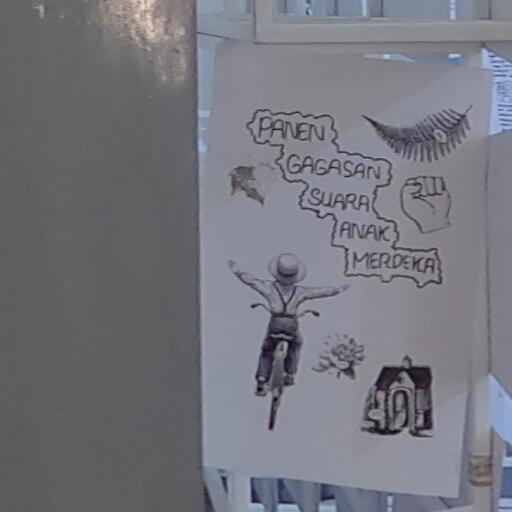 PANEN
GAGASAN
SUARA
ANAK
MERDEKA